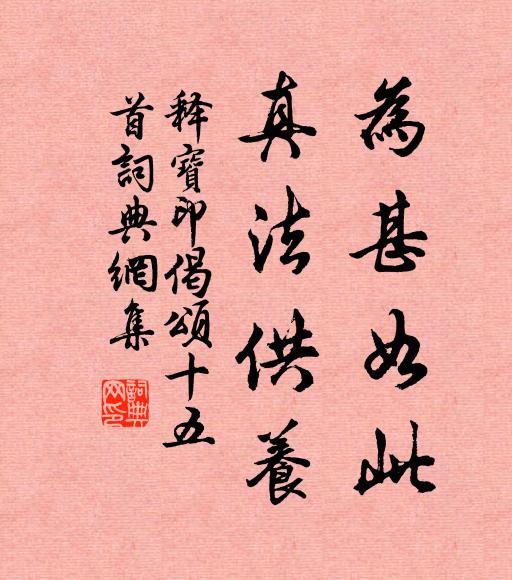 為甚如此
真法供養
释寶印偈頌十五
首詞典網集
詞典網印